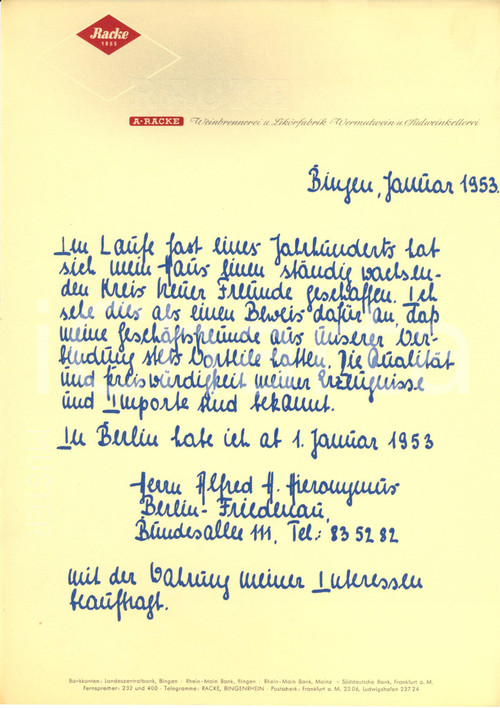 Racke
1855
A·RACKE Weinbrennerei u. Likörfabrik Wermutwein u. Südweinkellerei
Bingen, Januar 1953.
Im Laufe fast eines Jahrhunderts hat
sich mein Haus einen ständig wachsen-
den Kreis treuer Freunde geschaffen. Ich
sehe dies als einen Beweis dafür an, daß
meine Geschäftsfreunde aus unserer Ver-
bindung stets Vorteile hatten. Die Qualität
und Preiswürdigkeit meiner Erzeugnisse
und Importe sind bekannt.
In Berlin habe ich ab 1. Januar 1953
Herrn Alfred H. Hieronymus
Berlin-Friedenau,
Bundesallee 111, Tel.: 83 52 82
mit der Wahrung meiner Interessen
beauftragt.
Bankkonten: Landeszentralbank, Bingen · Rhein-Main Bank, Bingen · Rhein-Main Bank, Mainz · Süddeutsche Bank, Frankfurt a. M.
Fernsprecher: 232 und 400 · Telegramme: RACKE, BINGENRHEIN · Postscheck: Frankfurt a. M. 2306, Ludwigshafen 23724